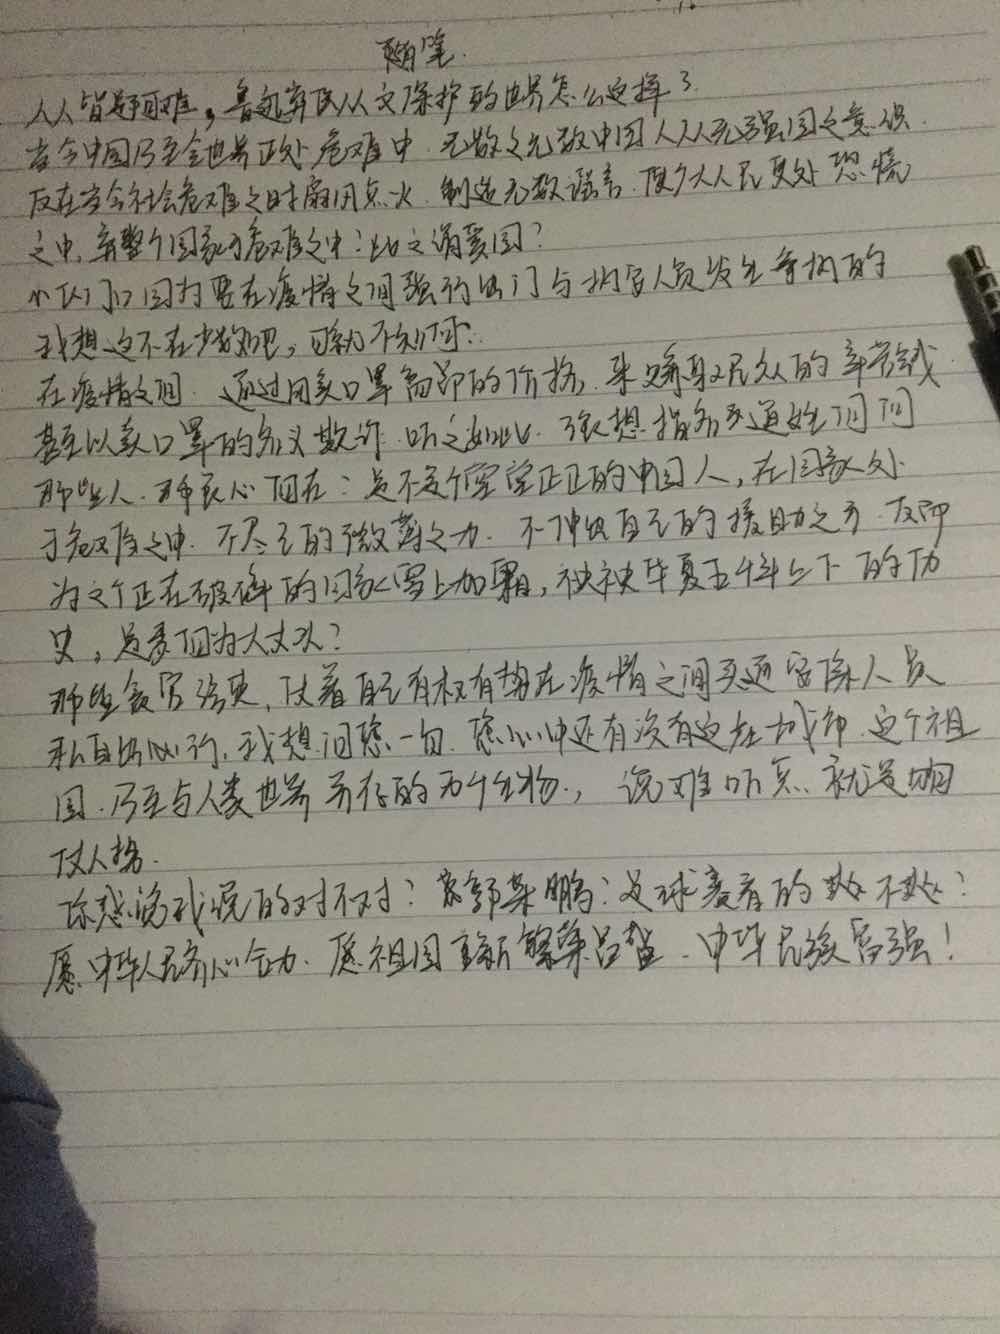 随笔
人人皆是可难，鲁迅弃医从文保护的世界怎么这样了
当今中国乃至全世界正处危难中 无数之无数中国人从无强国之意识
反在当今社会危难之时扇风点火 制造无数谣言 使个人人民更处恐慌
之中 弃整个国家于危难之中：此之谓爱国？
小区门口因为要在疫情之间强行出门与执官人员发生争执的
我想这不在少数吧，可我不知何
在疫情之间 通过用卖口罩高昂的价格 来赚取民众的辛苦钱
甚至以卖口罩的名义欺诈 听之如此 我很想指名又道姓问问
那些人 那良心何在：是不是个堂堂正正的中国人，在国家处
于危难之中 不尽己的微薄之力 不伸出自己的援助之手 反而
为这个正在破碎的国家雪上加霜，被华夏五千年上下的历
史，是为何为大丈夫？
那些贪官污吏 仗着自己有权有势在疫情之间买通官员人员
私自出行 我想问您一句 您心中还有没有这座城市 这个祖
国 乃至与人类世界 共存的万千生物，说难听点 就是狗
仗人势
你感觉我说的对不对？是球表看的
愿中华人民齐心合力 愿祖国重新繁荣昌盛 中华民族富强！